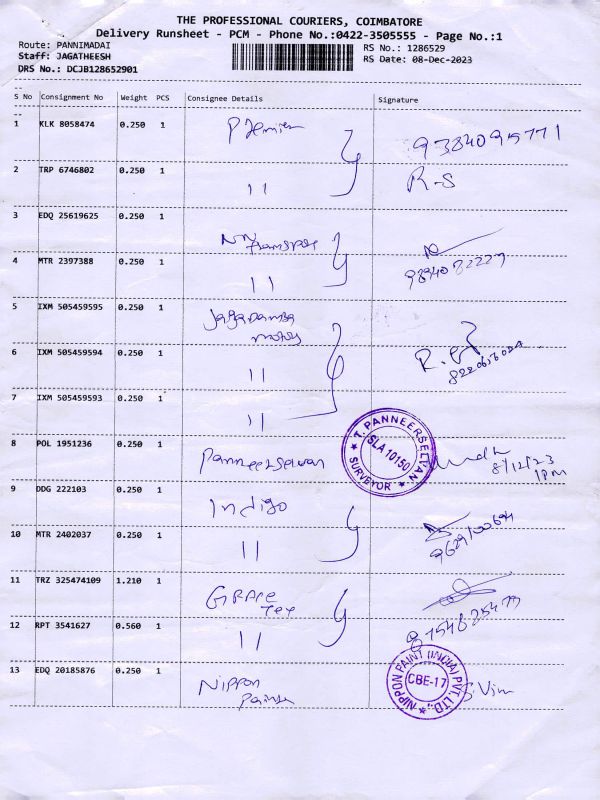 THE PROFESSIONAL COURIERS, COIMBATORE
Delivery Runsheet - PCM - Phone No.:0422-3505555 - Page No.:1
Route: PANNIMADAI
RS No.: 1286529
Staff: JAGATHEESH
RS Date: 08-Dec-2023
DRS No.: DCJB128652901
S No Consignment No Weight PCS Consignee Details Signature
1 KLK 8058474 0.250 1 9384095771
2 TRP 6746802 0.250 1 11 R-S
3 EDQ 25619625 0.250 1
4 MTR 2397388 0.250 1 11
5 IXM 505459595 0.250 1 Jagadamba
6 IXM 505459594 0.250 1 11
7 IXM 505459593 0.250 1 11
T. PANNEERSELVAN
SLA 10150
SURVEYOR
8 POL 1951236 0.250 1 Panneerselvan 8/12/23
1PM
9 DDG 222103 0.250 1 Indigo
10 MTR 2402037 0.250 1 11
11 TRZ 325474109 1.210 1 Grace
Tex
12 RPT 3541627 0.560 1 11 8754825477
13 EDQ 20185876 0.250 1 Nippon
Paint
NIPPON PAINT (INDIA) PVT. LTD.
CBE-17